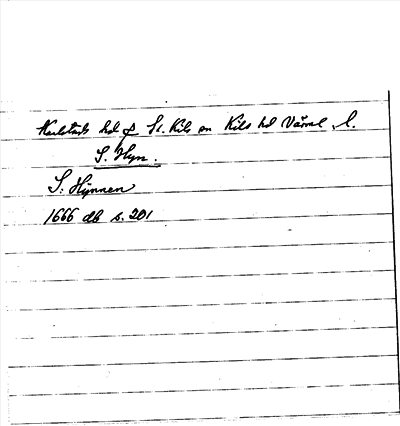 Karlstads hd f St. Kils sn Kils hd Värml. l.
S. Hyn.
S. Hÿnnen
1666 db s. 201